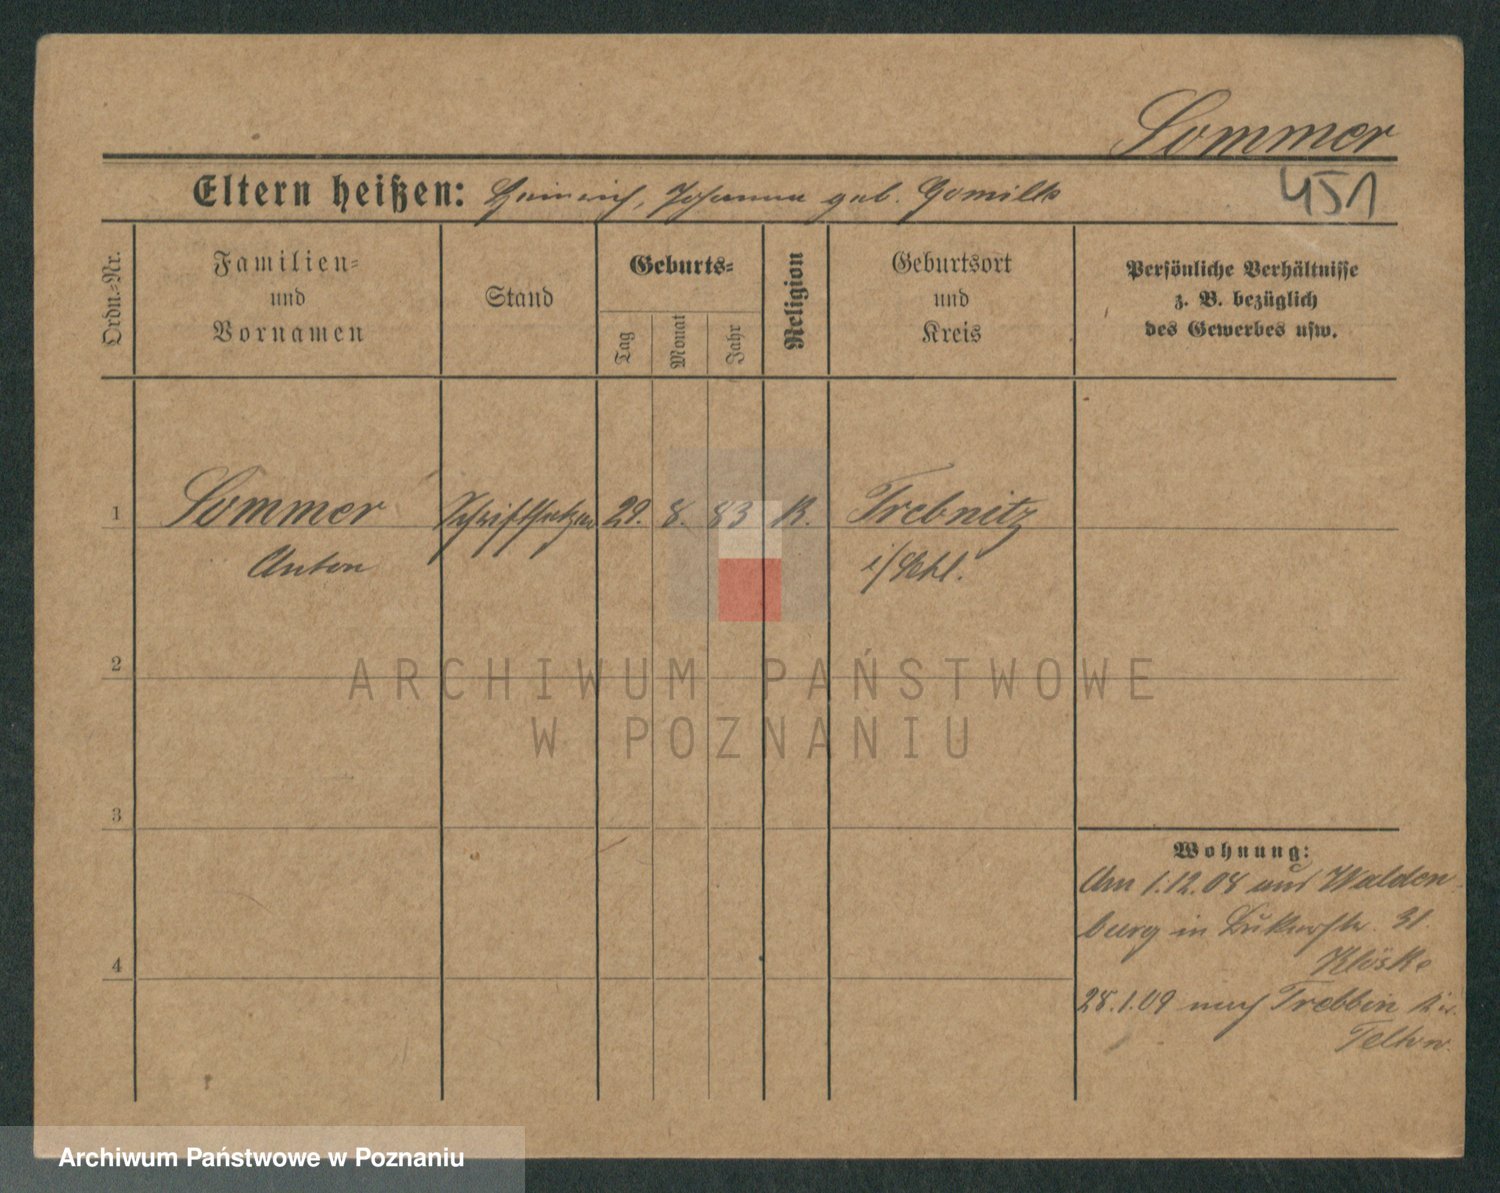 Sommer
451
Eltern heißen: Heinrich, Johanna geb. Gomille
Ordn.-Nr.
Familien-
und
Vornamen
Stand
Geburts-
Tag
Monat
Jahr
Religion
Geburtsort
und
Kreis
Persönliche Verhältnisse
z. B. bezüglich
des Gewerbes usw.
1 Sommer Schriftsetzer 29. 8. 83 K. Trebnitz
Anton i/Schl.
2
3
4
ARCHIWUM PAŃSTWOWE
W POZNANIU
Wohnung:
Am 1.12.08 aus Walden
burg in 31.
Klöske
28.1.09 nach Trebbin Kr.
Teltow.
Archiwum Państwowe w Poznaniu